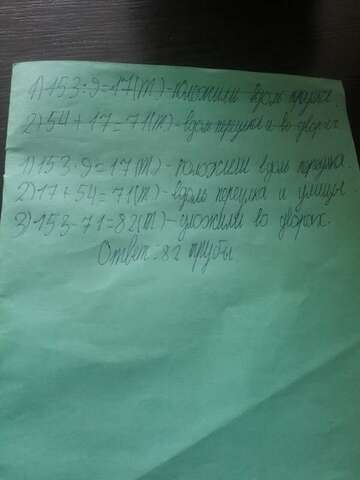 1) 153:9=17(т) - положили вдоль
2) 54+17=71(т) - вдоль переулка и во дворах
1) 153:9=17(т) - положили вдоль переулка.
2) 17+54=71(т) - вдоль переулка и улицы
3) 153-71=82(т) - уложили во дворах.
Ответ: 82 трубы.